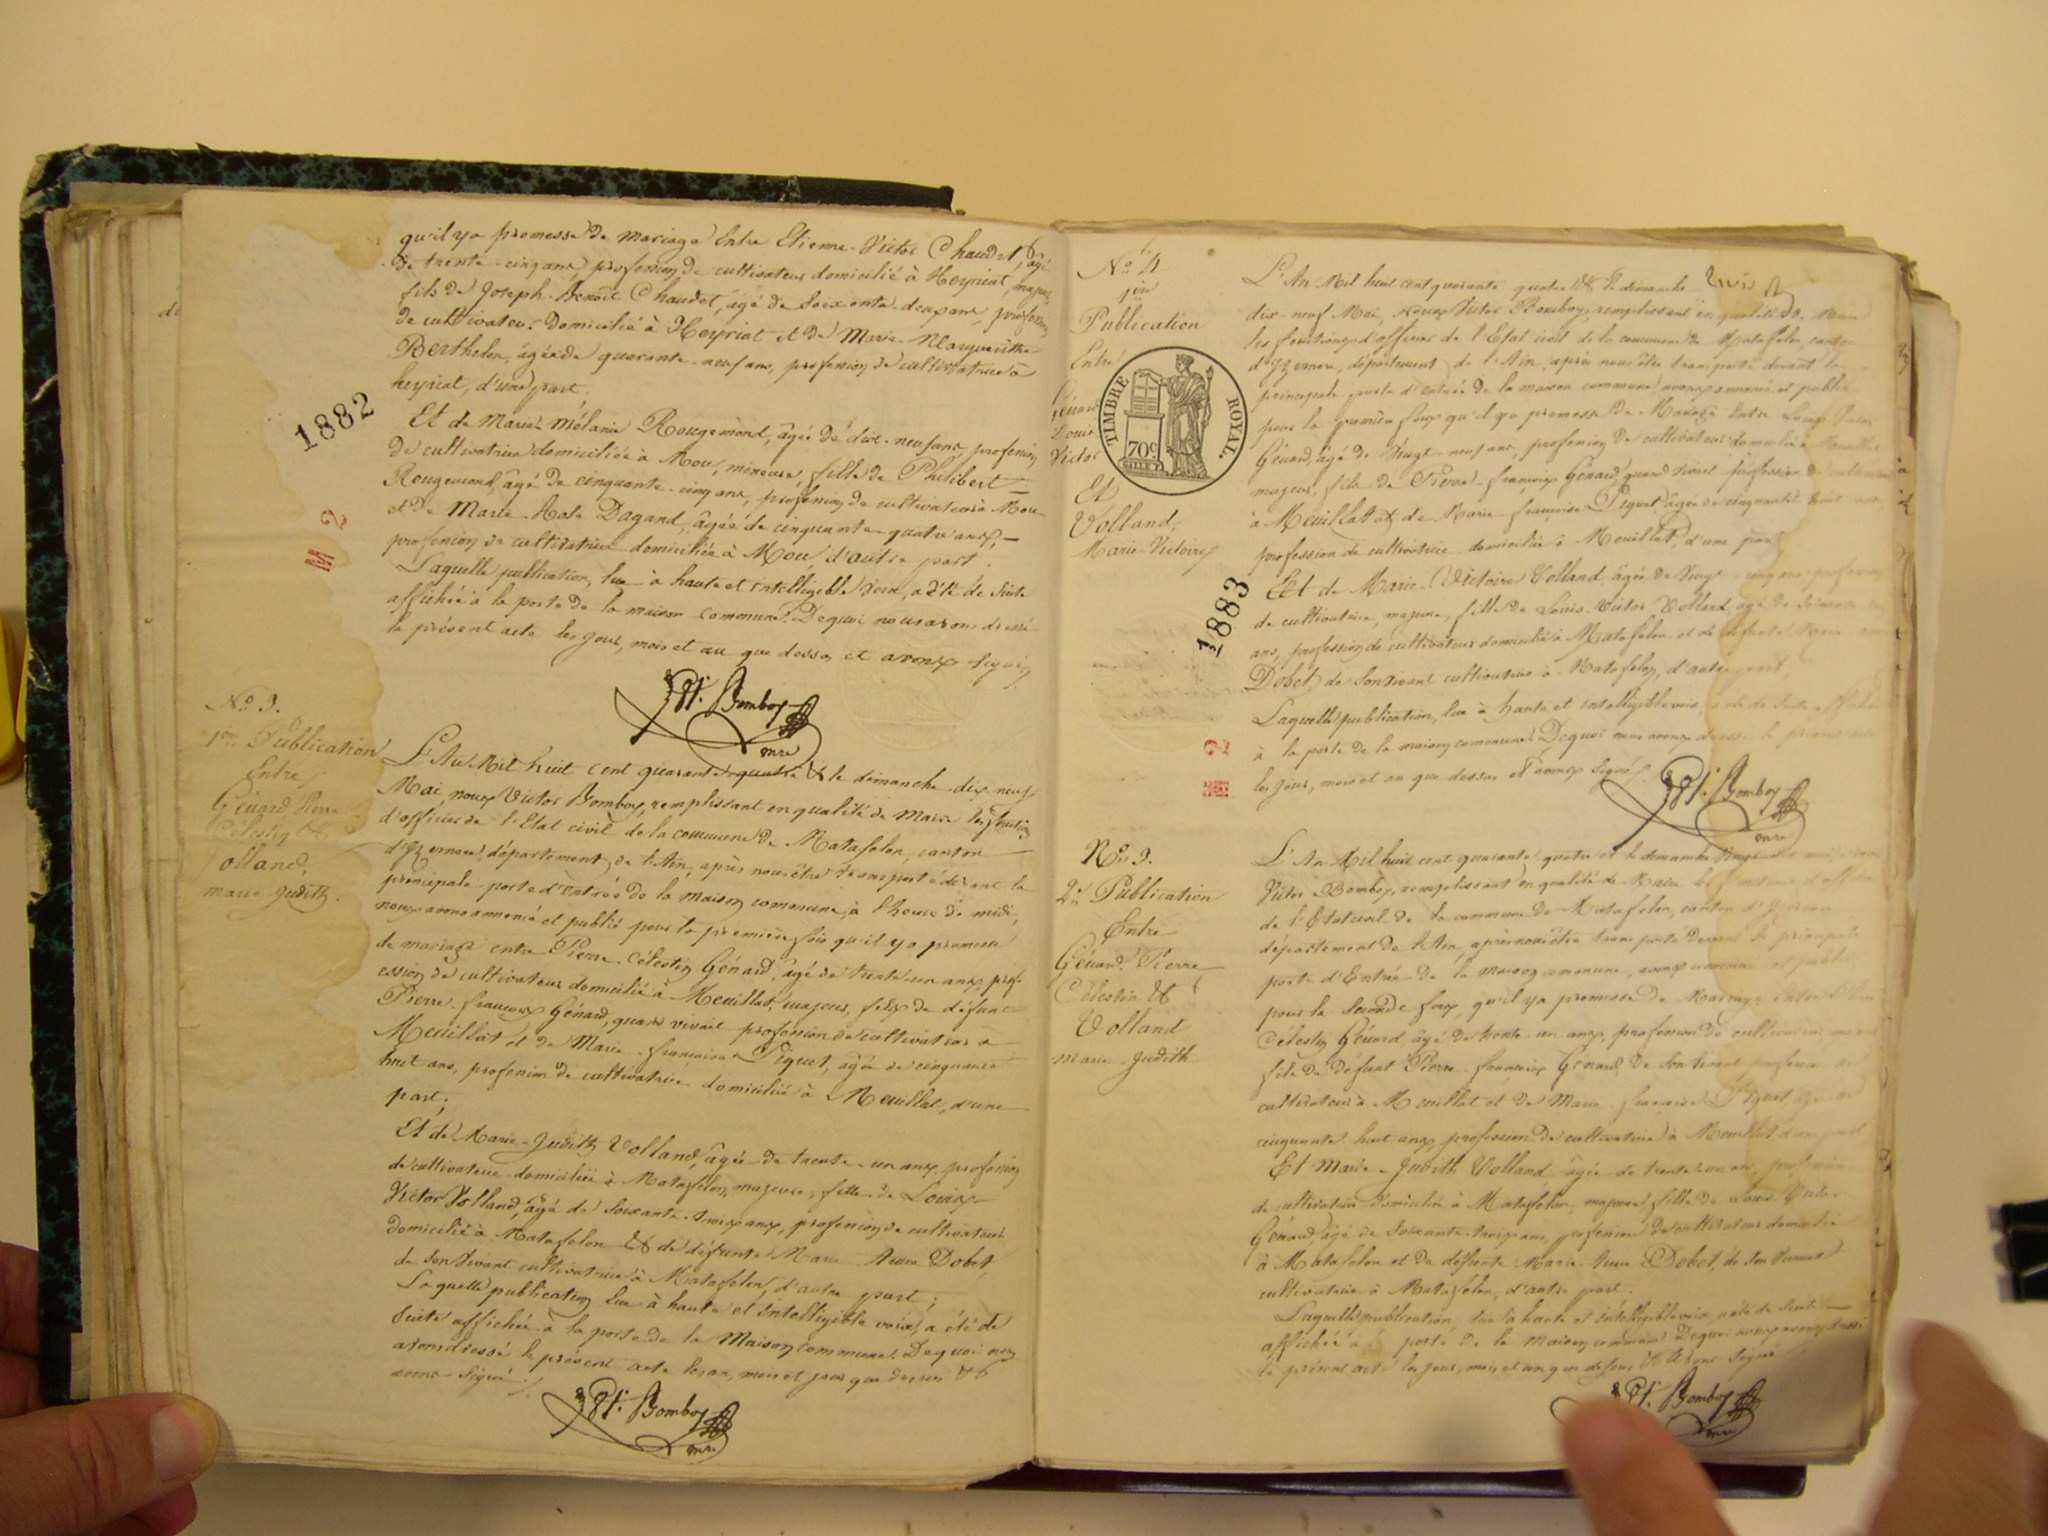 qu'il y a promesse de mariage Entre Etienne-Victor Chaudet, âgé
de trente-cinq ans, profession de cultivateur domicilié à Heyriat, majeur,
fils de Joseph-Benoît Chaudet, âgé de Soixante-deux ans, profession
de cultivateur domicilié à Heyriat et de Marie Marguerithe
Berthelon, âgée de quarante-neuf ans, profession de cultivatrice à
heyriat, d'une part.
1882
Et de Marie Mélanie Rougemond, âgée de dix-neuf ans, profession
de cultivatrice domiciliée à Mou, mineure, fille de Philibert
Rougemond, âgé de cinquante-cinq ans, profession de cultivateur à Mou
et de Marie-Dagand, âgée de cinquante-quatre ans,
profession de cultivatrice domiciliée à Mou, d'autre part.
Laquelle publication, lue à haute et intelligible voix, a été de Suite
affichée à la porte de la maison commune. De quoi nous avons dressé
le présent acte les jour, mois et an que dessus et avons Signé.
Bomboy
mre
No. 9.
1ère Publication
Entre
Génard Pierre
Célestin &
olland,
marie Judith.
L'An Mil huit cent quarante-quatre & le dimanche dix-neuf
Mai, nous Victor Bomboy, remplissant en qualité de Maire les fonctions
d'officier de l'Etat civil de la commune de Matafelon, canton
d'Izernore, département de l'Ain, après nous être transporté devant la
principale porte d'entrée de la Maison commune, à l'heure de midi,
nous avons annoncé et publié pour la première fois qu'il y a promesse
de mariage entre Pierre-Célestin Génard, âgé de trente-un ans, prof-
ession de cultivateur domicilié à Meuillat, majeur, fils de défunt
Pierre-françois Génard, quand vivait profession de cultivateur à
Meuillat et de Marie-francoise Piquet, âgée de cinquante
huit ans, profession de cultivatrice domiciliée à Meuillat, d'une
part;
Et de Marie-Judith Volland, âgée de trente-un ans, profession
de cultivatrice domiciliée à Matafelon, majeure, fille de Louis
Victor Volland, âgé de Soixante-trois ans, profession de cultivateur
domicilié à Matafelon & de défunte Marie-Anne Dobet,
de Son Vivant cultivatrice à Matafelon, d'autre part;
Laquelle publication lue à haute et intelligible voix, a été de
Suite affichée à la porte de la Maison commune. De quoi nous
avons dressé le présent acte les an, mois et jour que dessus &
avons Signé.
Bomboy
mre
No. 4
1ère
Publication
Entre
Génard
Louis
Victor
Et
Volland,
Marie-Victoire
TIMBRE ROYAL.
70c
1883
L'An Mil huit cent quarante-quatre & le dimanche
dix-neuf Mai, Nous Victor Bomboy, remplissant en qualité de Maire
les fonctions d'officier de l'Etat civil de la commune de Matafelon, canton
d'Izernore, département de l'Ain, après nous être transporté devant la
principale porte d'entrée de la maison commune avons annoncé et publié
pour la première fois qu'il y a promesse de Mariage Entre Louis Victor
Génard, âgé de Vingt-neuf ans, profession de cultivateur domicilié à Meuillat
majeur, fils de Pierre-françois Génard, quand vivait profession de cultivateur
à Meuillat & de Marie-françoise Piquet âgée de cinquante huit ans
profession de cultivatrice domiciliée à Meuillat, d'une part
Et de Marie-Victoire Volland, âgée de Vingt-cinq ans, profession
de cultivatrice, majeure, fille de Louis-Victor Volland, âgé de Soixante
ans, profession de cultivateur domicilié à Matafelon et de défunte Marie
Dobet, de Son vivant cultivatrice à Matafelon, d'autre part;
Laquelle publication, lue à haute et intelligible voix, a été de Suite affichée
à la porte de la maison commune. De quoi nous avons dressé le présent acte
les jour, mois et an que dessus et avons Signé.
Bomboy
mre
No. 9.
2e Publication
Entre
Génard Pierre
Célestin &
Volland
marie Judith
L'An Mil huit cent quarante quatre et le dimanche Vingt
Victor Bomboy, remplissant en qualité de Maire les fonctions d'officier
de l'Etat civil de la commune de Matafelon, canton d'Izernore
département de l'Ain, après nous être transporté devant la principale
porte d'Entrée de la Maison commune, avons annoncé et publié
pour la Seconde fois, qu'il y a promesse de Mariage Entre Pierre
Célestin Génard, âgé de trente-un ans, profession de cultivateur, majeur
fils de défunt Pierre-françois Génard, de Son vivant profession de
cultivateur à Meuillat et de Marie-françoise Piquet, âgée de
cinquante huit ans, profession de cultivatrice à Meuillat d'une part
Et Marie-Judith Volland, âgée de trente-un ans, profession
de cultivatrice domiciliée à Matafelon, majeure, fille de Louis-Victor
Génard âgé de Soixante-trois ans, profession de cultivateur domicilié
à Matafelon et de défunte Marie-Anne Dobet, de Son Vivant
cultivatrice à Matafelon, d'autre part.
Laquelle publication, lue à haute et intelligible voix, a été de Suite
affichée à la porte de la Maison commune. De quoi nous avons dressé
le présent acte les jour, mois et an que dessus & avons Signé
Bomboy
mre